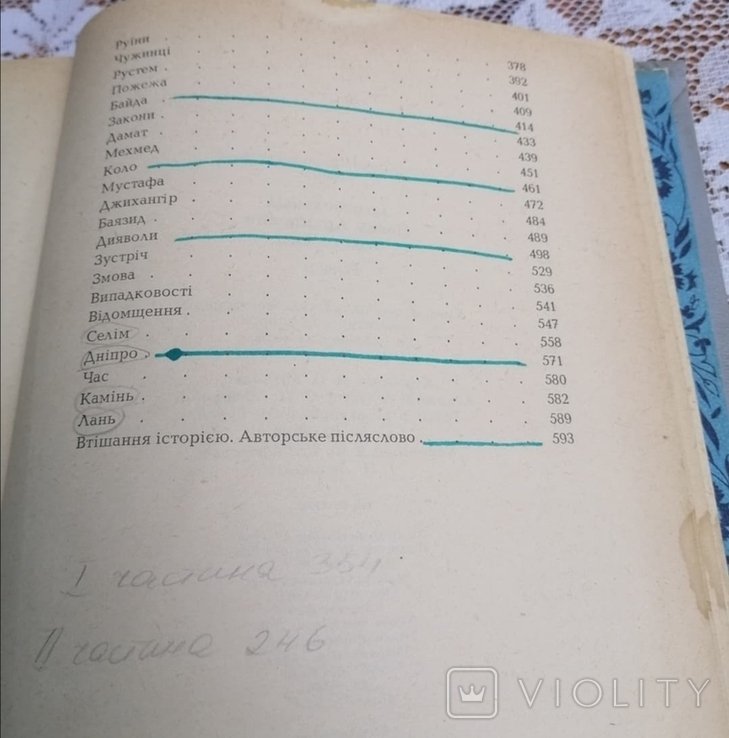 Руїни . . . . . . . 378
Чужинці . . . . . . . 392
Рустем . . . . . . . 401
Пожежа . . . . . . . 409
Байда . . . . . . . 414
Закони . . . . . . . 433
Дамат . . . . . . . 439
Мехмед . . . . . . . 451
Коло . . . . . . . 461
Мустафа . . . . . . . 472
Джихангір . . . . . . . 484
Баязид . . . . . . . 489
Дияволи . . . . . . . 498
Зустріч . . . . . . . 529
Змова . . . . . . . 536
Випадковості . . . . . . 541
Відомщення . . . . . . . 547
Селім . . . . . . . 558
Дніпро . . . . . . . 571
Час . . . . . . . 580
Камінь . . . . . . . 582
Лань . . . . . . . 589
Втішання історією. Авторське післяслово . . . 593
I частина 354
II частина 246
VIOLITY